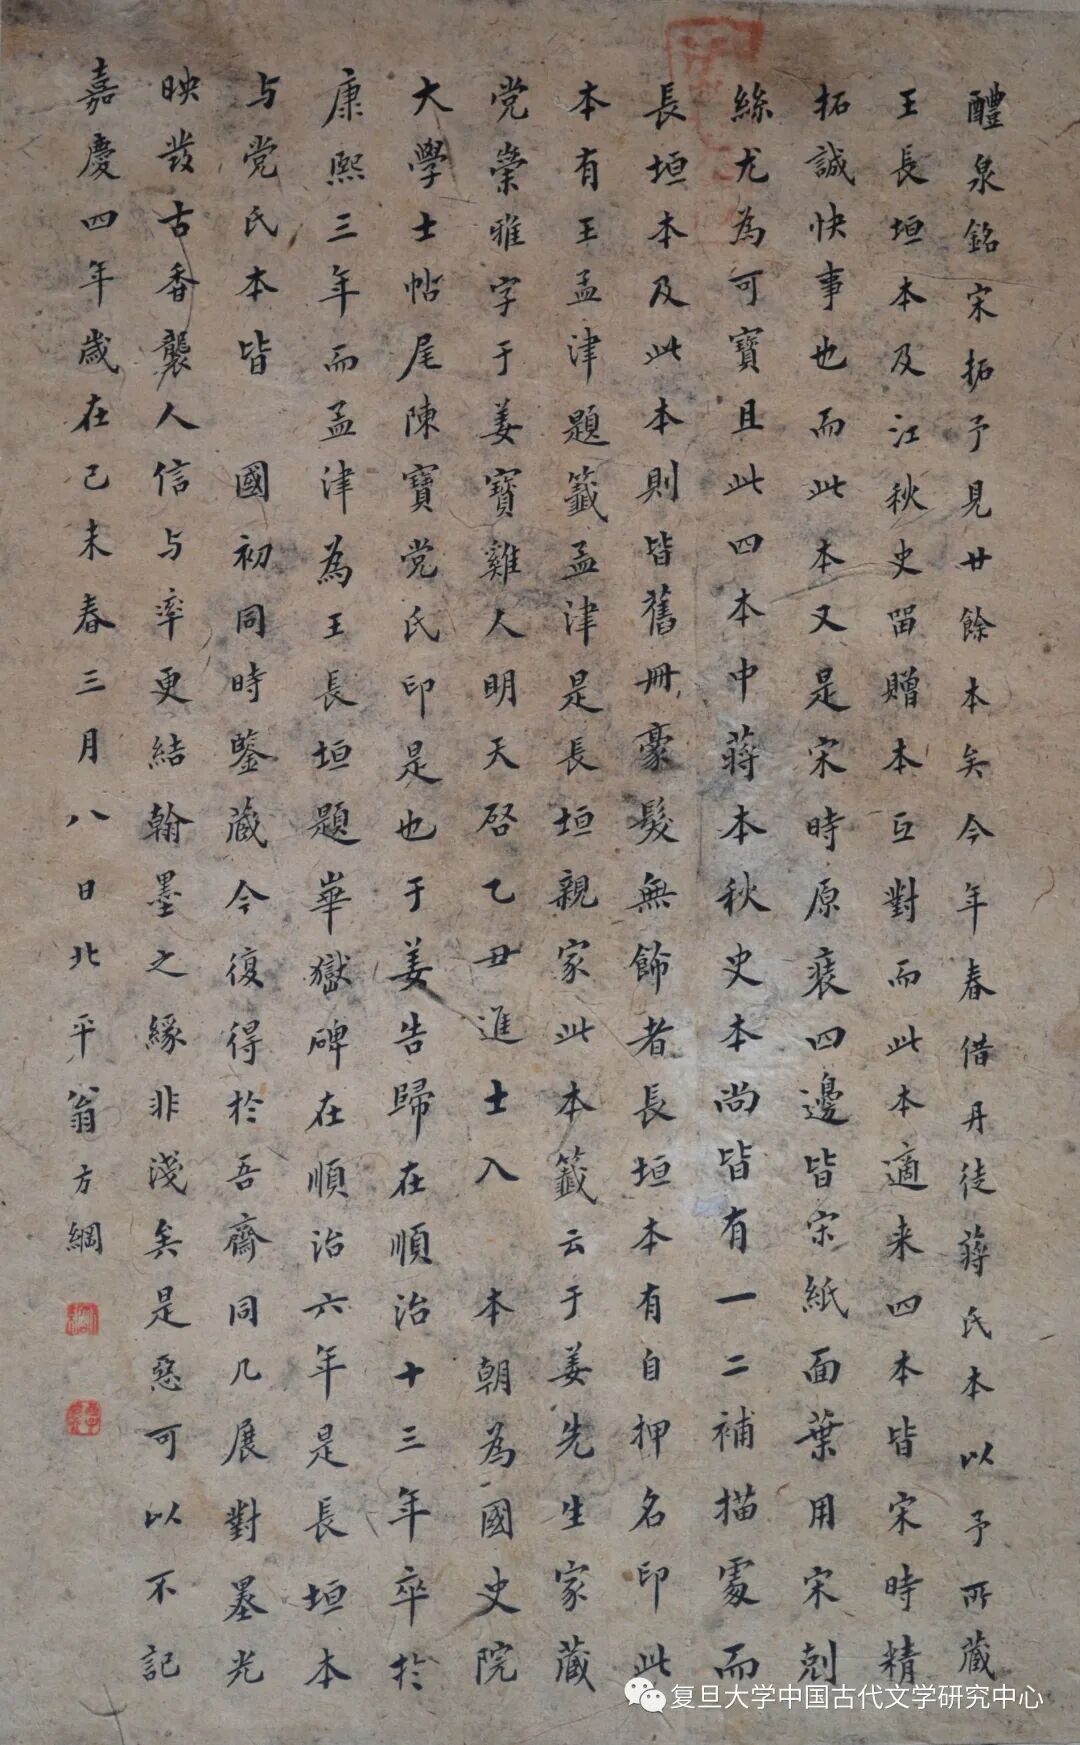 醴泉銘宋拓予見廿餘本矣今年春借丹徒蔣氏本以予所藏
王長垣本及江秋史留贈本互對而此本適来四本皆宋時精
拓誠快事也而此本又是宋時原裱四邊皆宋紙面葉用宋剋
絲尤為可寶且此四本中蔣本秋史本尚皆有一二補描處而
長垣本及此本則皆舊冊豪髮無飾者長垣本有自押名印此
本有王孟津題籤孟津是長垣親家此本籤云于姜先生家藏
党崇雅字于姜寶雞人明天啓乙丑進士入 本朝為國史院
大學士帖尾陳寶党氏印是也于姜告歸在順治十三年卒於
康熙三年而孟津為王長垣題華嶽碑在順治六年是長垣本
与党氏本皆 國初同時鑒藏今復得於吾齋同几展對墨光
映發古香襲人信与率更結翰墨之緣非淺矣是惡可以不記
嘉慶四年歲在己未春三月八日北平翁方綱
复旦大学中国古代文学研究中心